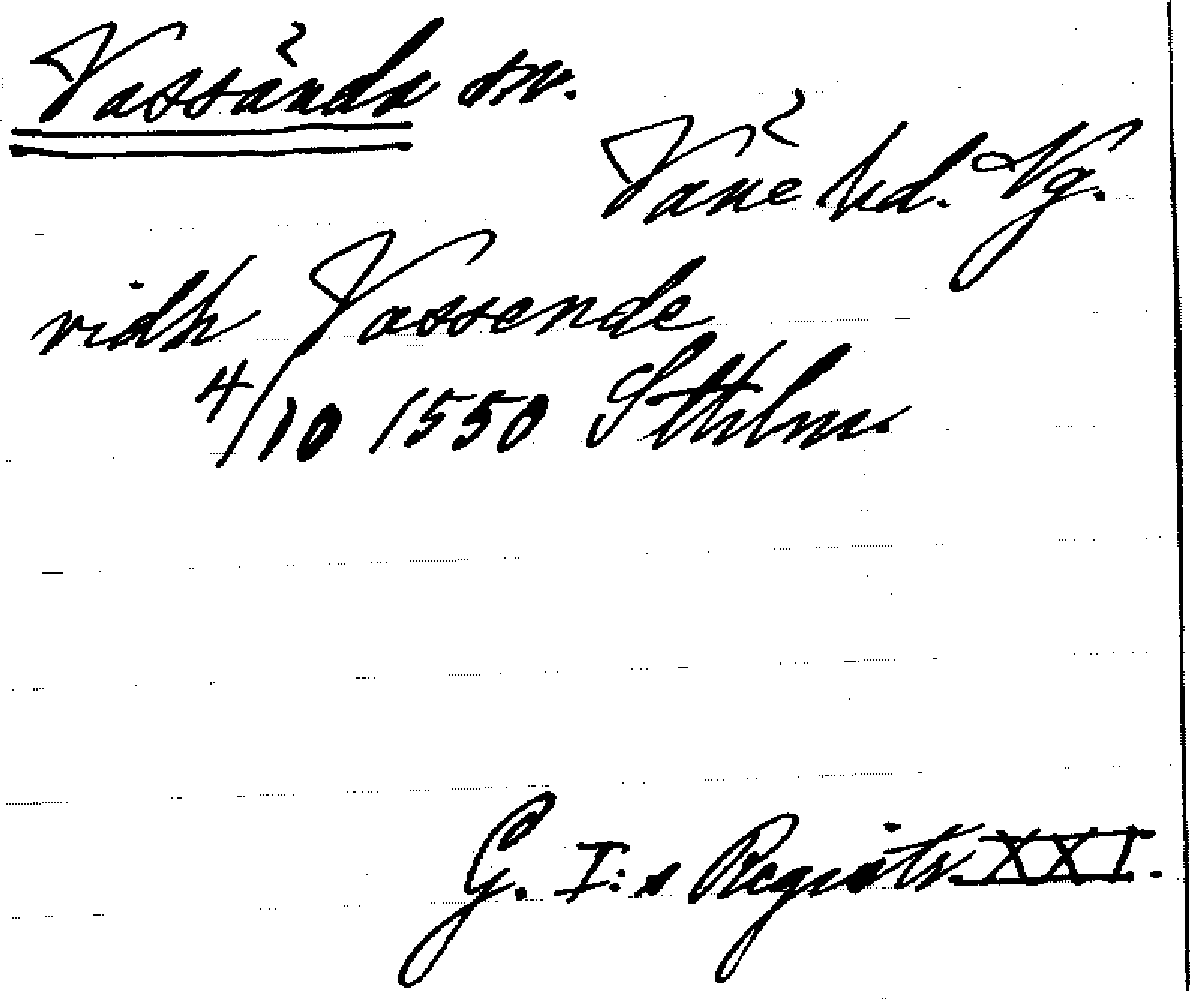 Vassända sn.
Väne hd. Vg.
vidh Vassende
4/10 1550 Sthlm.
G. I:s Registr. XXI.